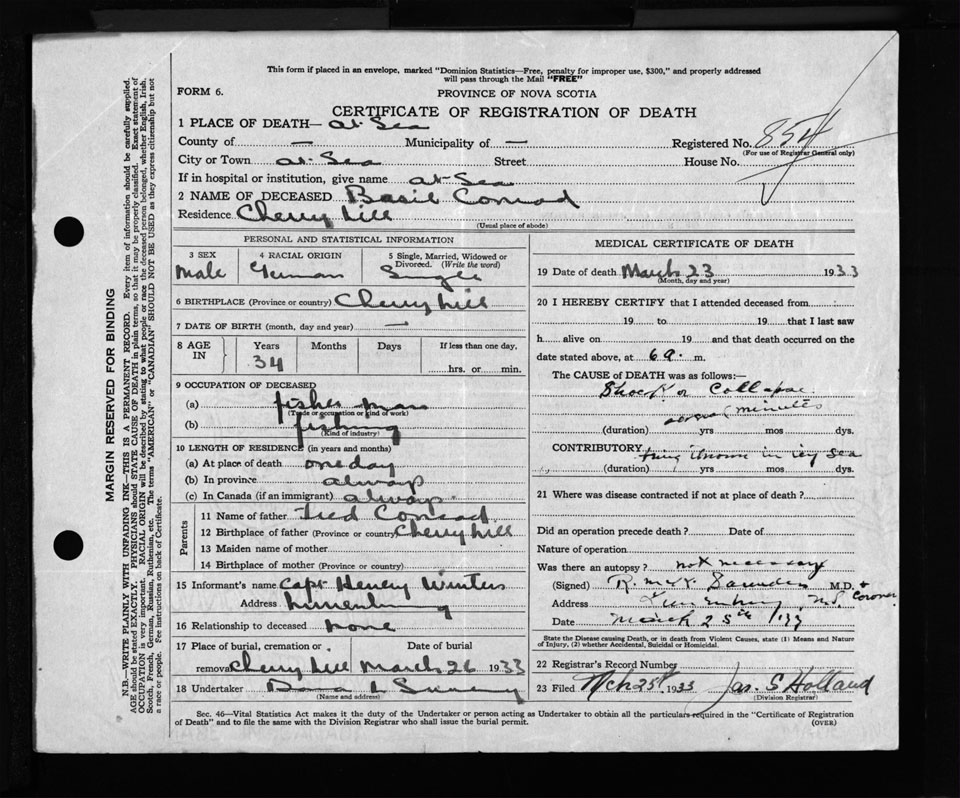 This form if placed in an envelope, marked "Dominion Statistics—Free, penalty for improper use, $300," and properly addressed
will pass through the Mail "FREE"
FORM 6.
PROVINCE OF NOVA SCOTIA
CERTIFICATE OF REGISTRATION OF DEATH
1 PLACE OF DEATH— at Sea
County of — Municipality of — Registered No. 854
(For use of Registrar General only)
City or Town at Sea Street House No.
If in hospital or institution, give name at Sea
2 NAME OF DECEASED Basil Conrad
Residence Cherry hill
(Usual place of abode)
PERSONAL AND STATISTICAL INFORMATION
3 SEX 4 RACIAL ORIGIN 5 Single, Married, Widowed or
Divorced. (Write the word)
Male German Single
6 BIRTHPLACE (Province or country) Cherry hill
7 DATE OF BIRTH (month, day and year) —
8 AGE IN Years Months Days If less than one day,
34 hrs. or min.
9 OCCUPATION OF DECEASED
(a) fisher man
(Trade or occupation or kind of work)
(b) fishing
(Kind of industry)
10 LENGTH OF RESIDENCE (in years and months)
(a) At place of death one day
(b) In province always
(c) In Canada (if an immigrant) always
Parents
11 Name of father Fred Conrad
12 Birthplace of father (Province or country) Cherry hill
13 Maiden name of mother
14 Birthplace of mother (Province or country)
15 Informant's name Capt Henry Winters
Address Lunenburg
16 Relationship to deceased none
17 Place of burial, cremation or Date of burial
removal Cherry hill March 26 1933
18 Undertaker
(Name and address)
MEDICAL CERTIFICATE OF DEATH
19 Date of death March 23 1933
(Month, day and year)
20 I HEREBY CERTIFY that I attended deceased from
19 to 19 that I last saw
h alive on 19 and that death occurred on the
date stated above, at 6 a. m.
The CAUSE OF DEATH was as follows:—
Shock or Collapse
minutes
(duration) yrs mos dys.
CONTRIBUTORY being thrown in icy sea
(duration) yrs mos dys.
21 Where was disease contracted if not at place of death?
Did an operation precede death? Date of
Nature of operation
Was there an autopsy? not necessary
(Signed) Saunders M.D. + Coroner
Address Lunenburg, N.S.
Date March 25th /33
State the Disease causing Death, or in death from Violent Causes, state (1) Means and Nature
of Injury, (2) whether Accidental, Suicidal or Homicidal.
22 Registrar's Record Number
23 Filed Mch 25th 1933 Jas. S Holland
(Division Registrar)
Sec. 46—Vital Statistics Act makes it the duty of the Undertaker or person acting as Undertaker to obtain all the particulars required in the "Certificate of Registration
of Death" and to file the same with the Division Registrar who shall issue the burial permit.
(OVER)
MARGIN RESERVED FOR BINDING
N.B.—WRITE PLAINLY WITH UNFADING INK—THIS IS A PERMANENT RECORD. Every item of information should be carefully supplied.
AGE should be stated EXACTLY. PHYSICIANS should STATE CAUSE OF DEATH in plain terms, so that it may be properly classified. Exact statement of
OCCUPATION is very important. RACIAL ORIGIN will be described by stating to what people or race the deceased person belonged, whether English, Irish,
Scotch, French, German, Russian, Ruthenian, etc. The terms "AMERICAN" or "CANADIAN" SHOULD NOT BE USED as they express citizenship but not
a race or people. See instructions on back of Certificate.